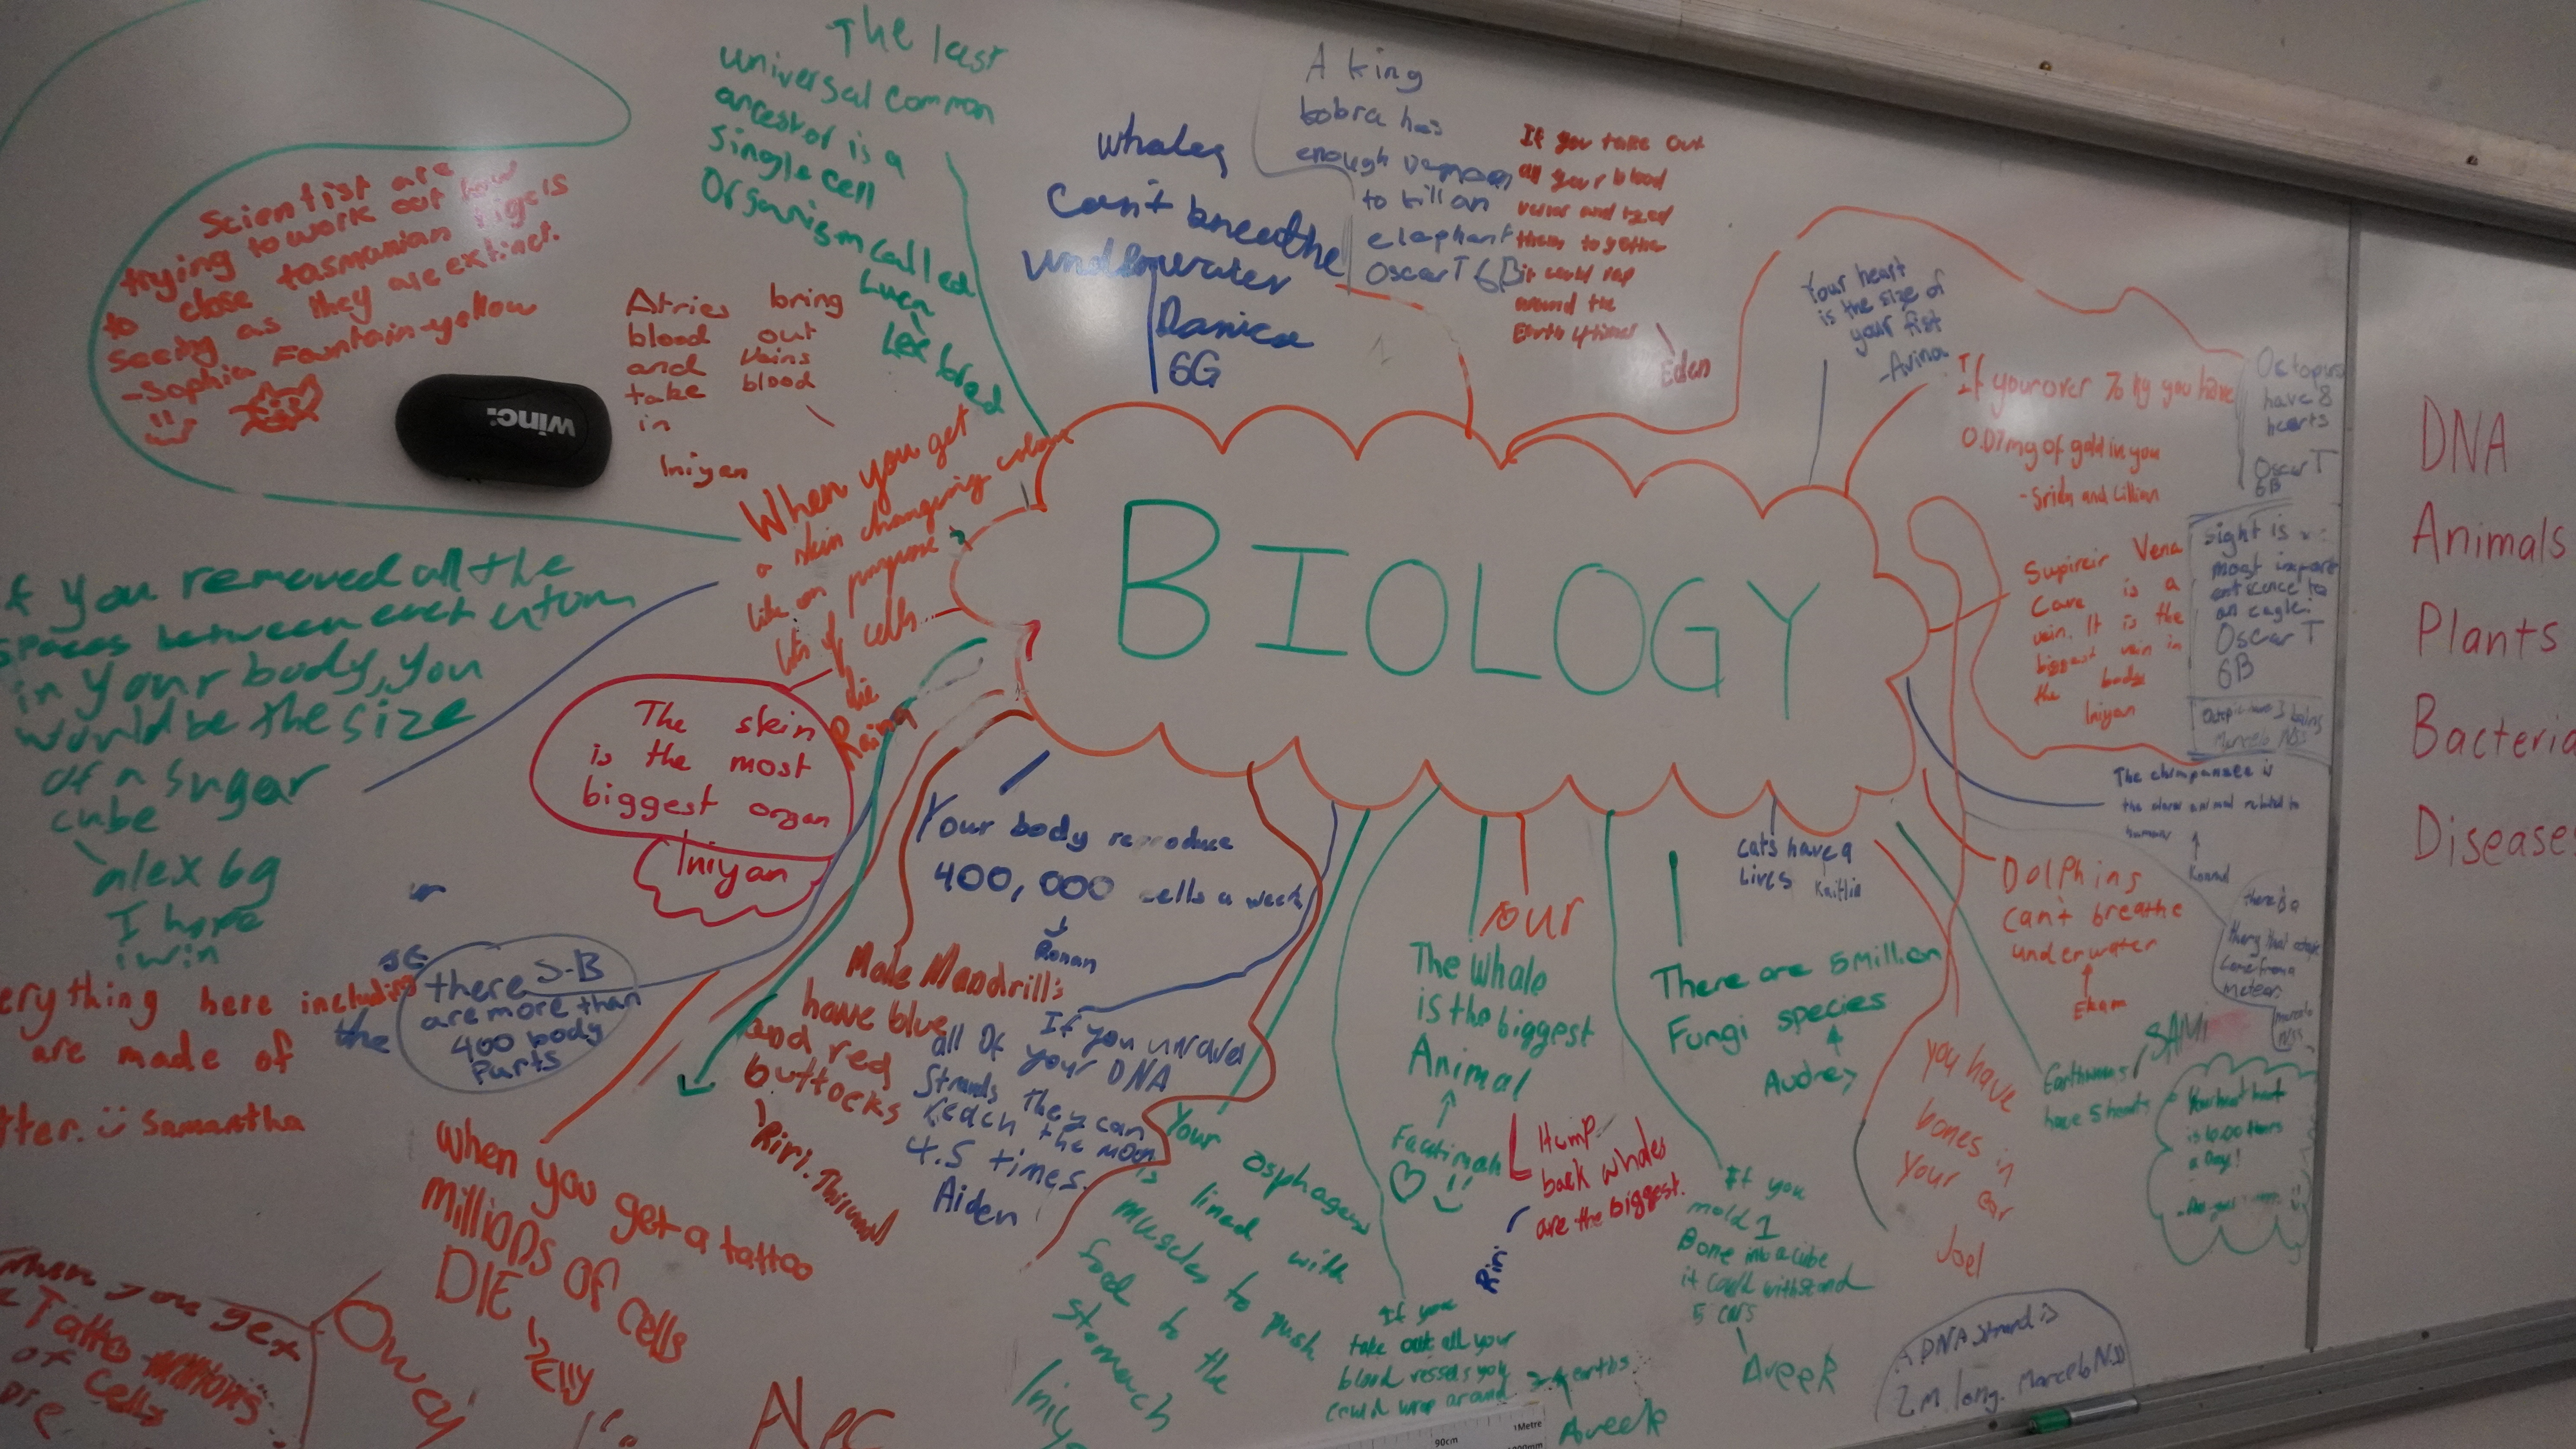 BIOLOGY
The last
universal common
ancestor is a
single cell
Organism called
Luca
Lex bred
Scientist are
trying to work out how
to close tasmanian tigels
seeing as they are extinct.
-Sophia Fountain-yellow
winc.
Atries bring
blood out
and vains
take blood
in
Iniyan
whales
Can't breathe
underwater
Danica
6G
A king
bobra has
enough
to kill an
elephant
Oscar T 6B
If you take out
all your blood
them together
it could rap
around the
Earth 4 times
Eden
Your heart
is the size of
your fist
-Avina
If your over 70 kg you have
0.07mg of gold in you
Octopus
have 8
hearts
Oscar T
6B
Supireir Vena
Cava is a
vein. It is the
biggest vein in
the body
Iniyan
sight is
most import
an eagle
Oscar T
6B
Marcelo
The chimpanzee is
human
DNA
Animals
Plants
Bacteria
Disease
When you get
a skin changing colour
like on purpose
lots of cells...
die
The skin
is the most
biggest organ
Iniyan
f you removed all the
spaces between
in your body, you
would be the size
of a sugar
cube
alex 6g
I hope
i win
erything here including
the
are made of
tter. Samantha
there S-B
are more than
400 body
Parts
Your body reproduce
400,000 cells a week
Ronan
Male Mandrill's
have blue
and red
buttocks
Riri.
If you unravel
all of your DNA
Strands they can
reach the moon
4.5 times.
Aiden
When you get a tattoo
millions of cells
DIE
When you get
a Tatto
of cells
DIE
Your osphagus
is lined with
muscles to push
food to the
stomach
our
The whale
is the biggest
Animal
Faatimah
Hump
back whales
are the biggest.
Riri
There are 5 million
Fungi species
Audrey
cats have 9
lives Kaitlin
Dolphins
can't breathe
underwater
Ekam
SAMi
Earthworms
have 5 hearts
you have
bones in
your ear
Joel
there is a
come from a
meteor
a Day!
If you
mold 1
Bone into a cube
it could withstand
5 cars
Aveek
If you
take out all your
blood vessels you
could wrap around
earths
Aveek
A DNA strand is
2m long. Marcelo
90cm
1Metre